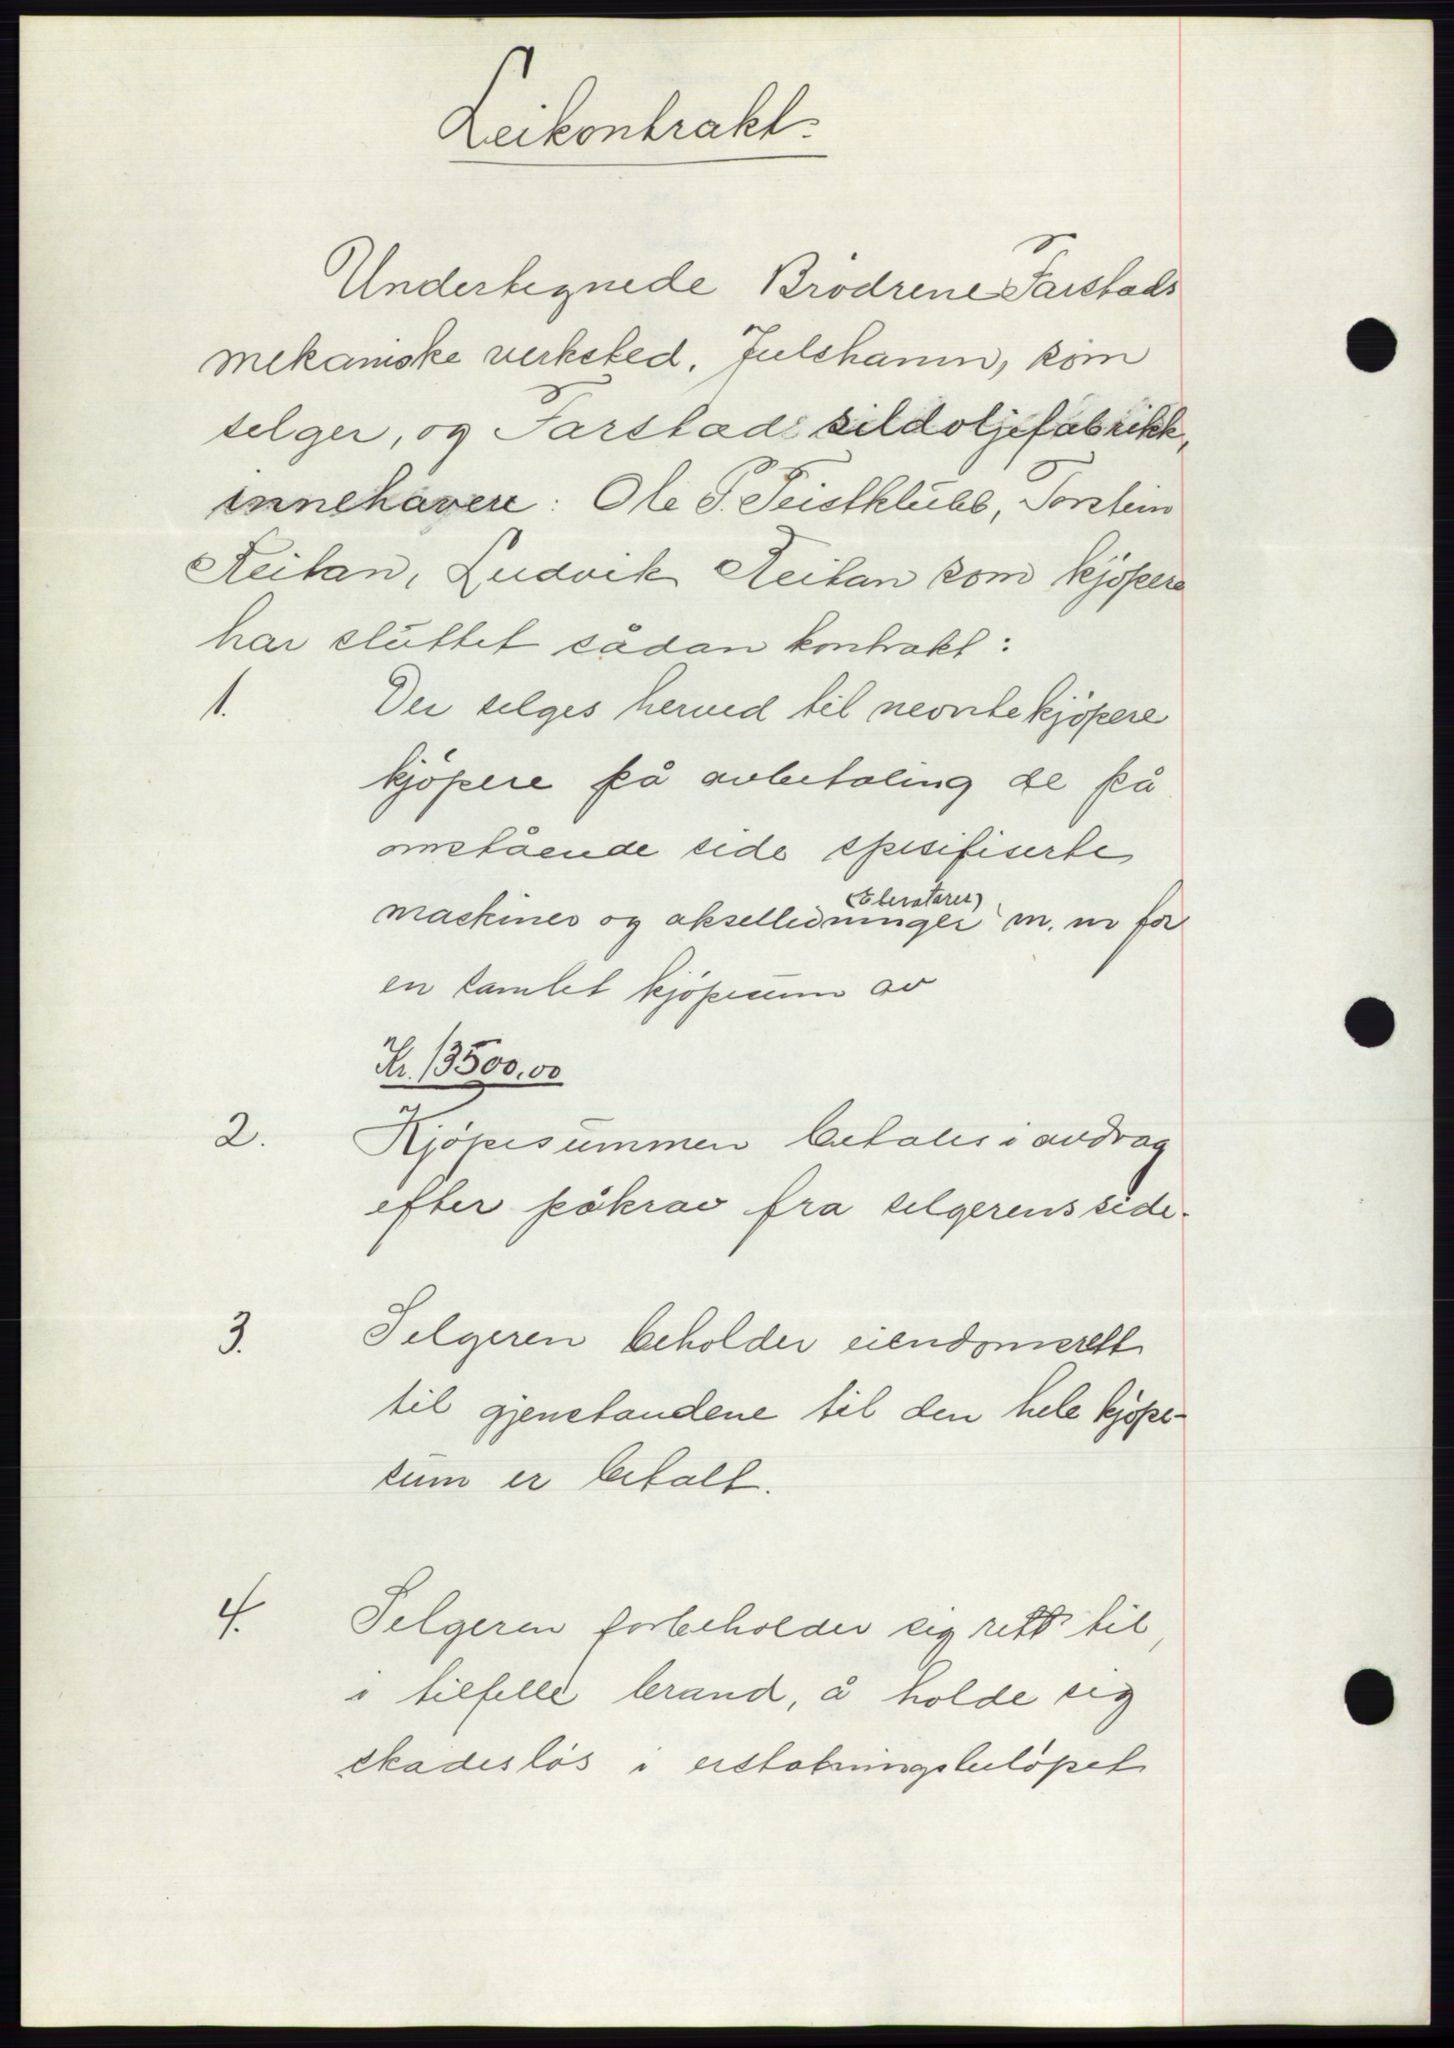 Leikontrakt.
Undertegnede Brödrene Farstads
mekaniske verksted, Julshamn, som
selger, og Farstad sildoljefabrikk,
innehavere: Ole P. Teistklubb, Torstein
Reitan, Ludvik Reitan som kjöpere
har sluttet sådan kontrakt:
1. Der selges herved til nevnte kjöpere
kjöpere på avbetaling de på
omstående side spesifiserte
(Elevatorer)
maskiner og akselledninger m. m for
en samlet kjöpesum av
Kr. 13500,00
2. Kjöpesummen betales i avdrag
efter påkrav fra selgerens side.
3. Selgeren beholder eiendomsrett
til gjenstandene til den hele kjöpe-
sum er betalt.
4. Selgeren forbeholder sig rett til,
i tilfelle brand, å holde sig
skadeslös i erstatningsbelöpet